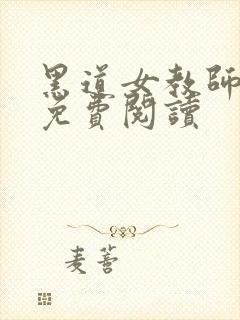 黑道女教師
免費閱讀
麦蓍